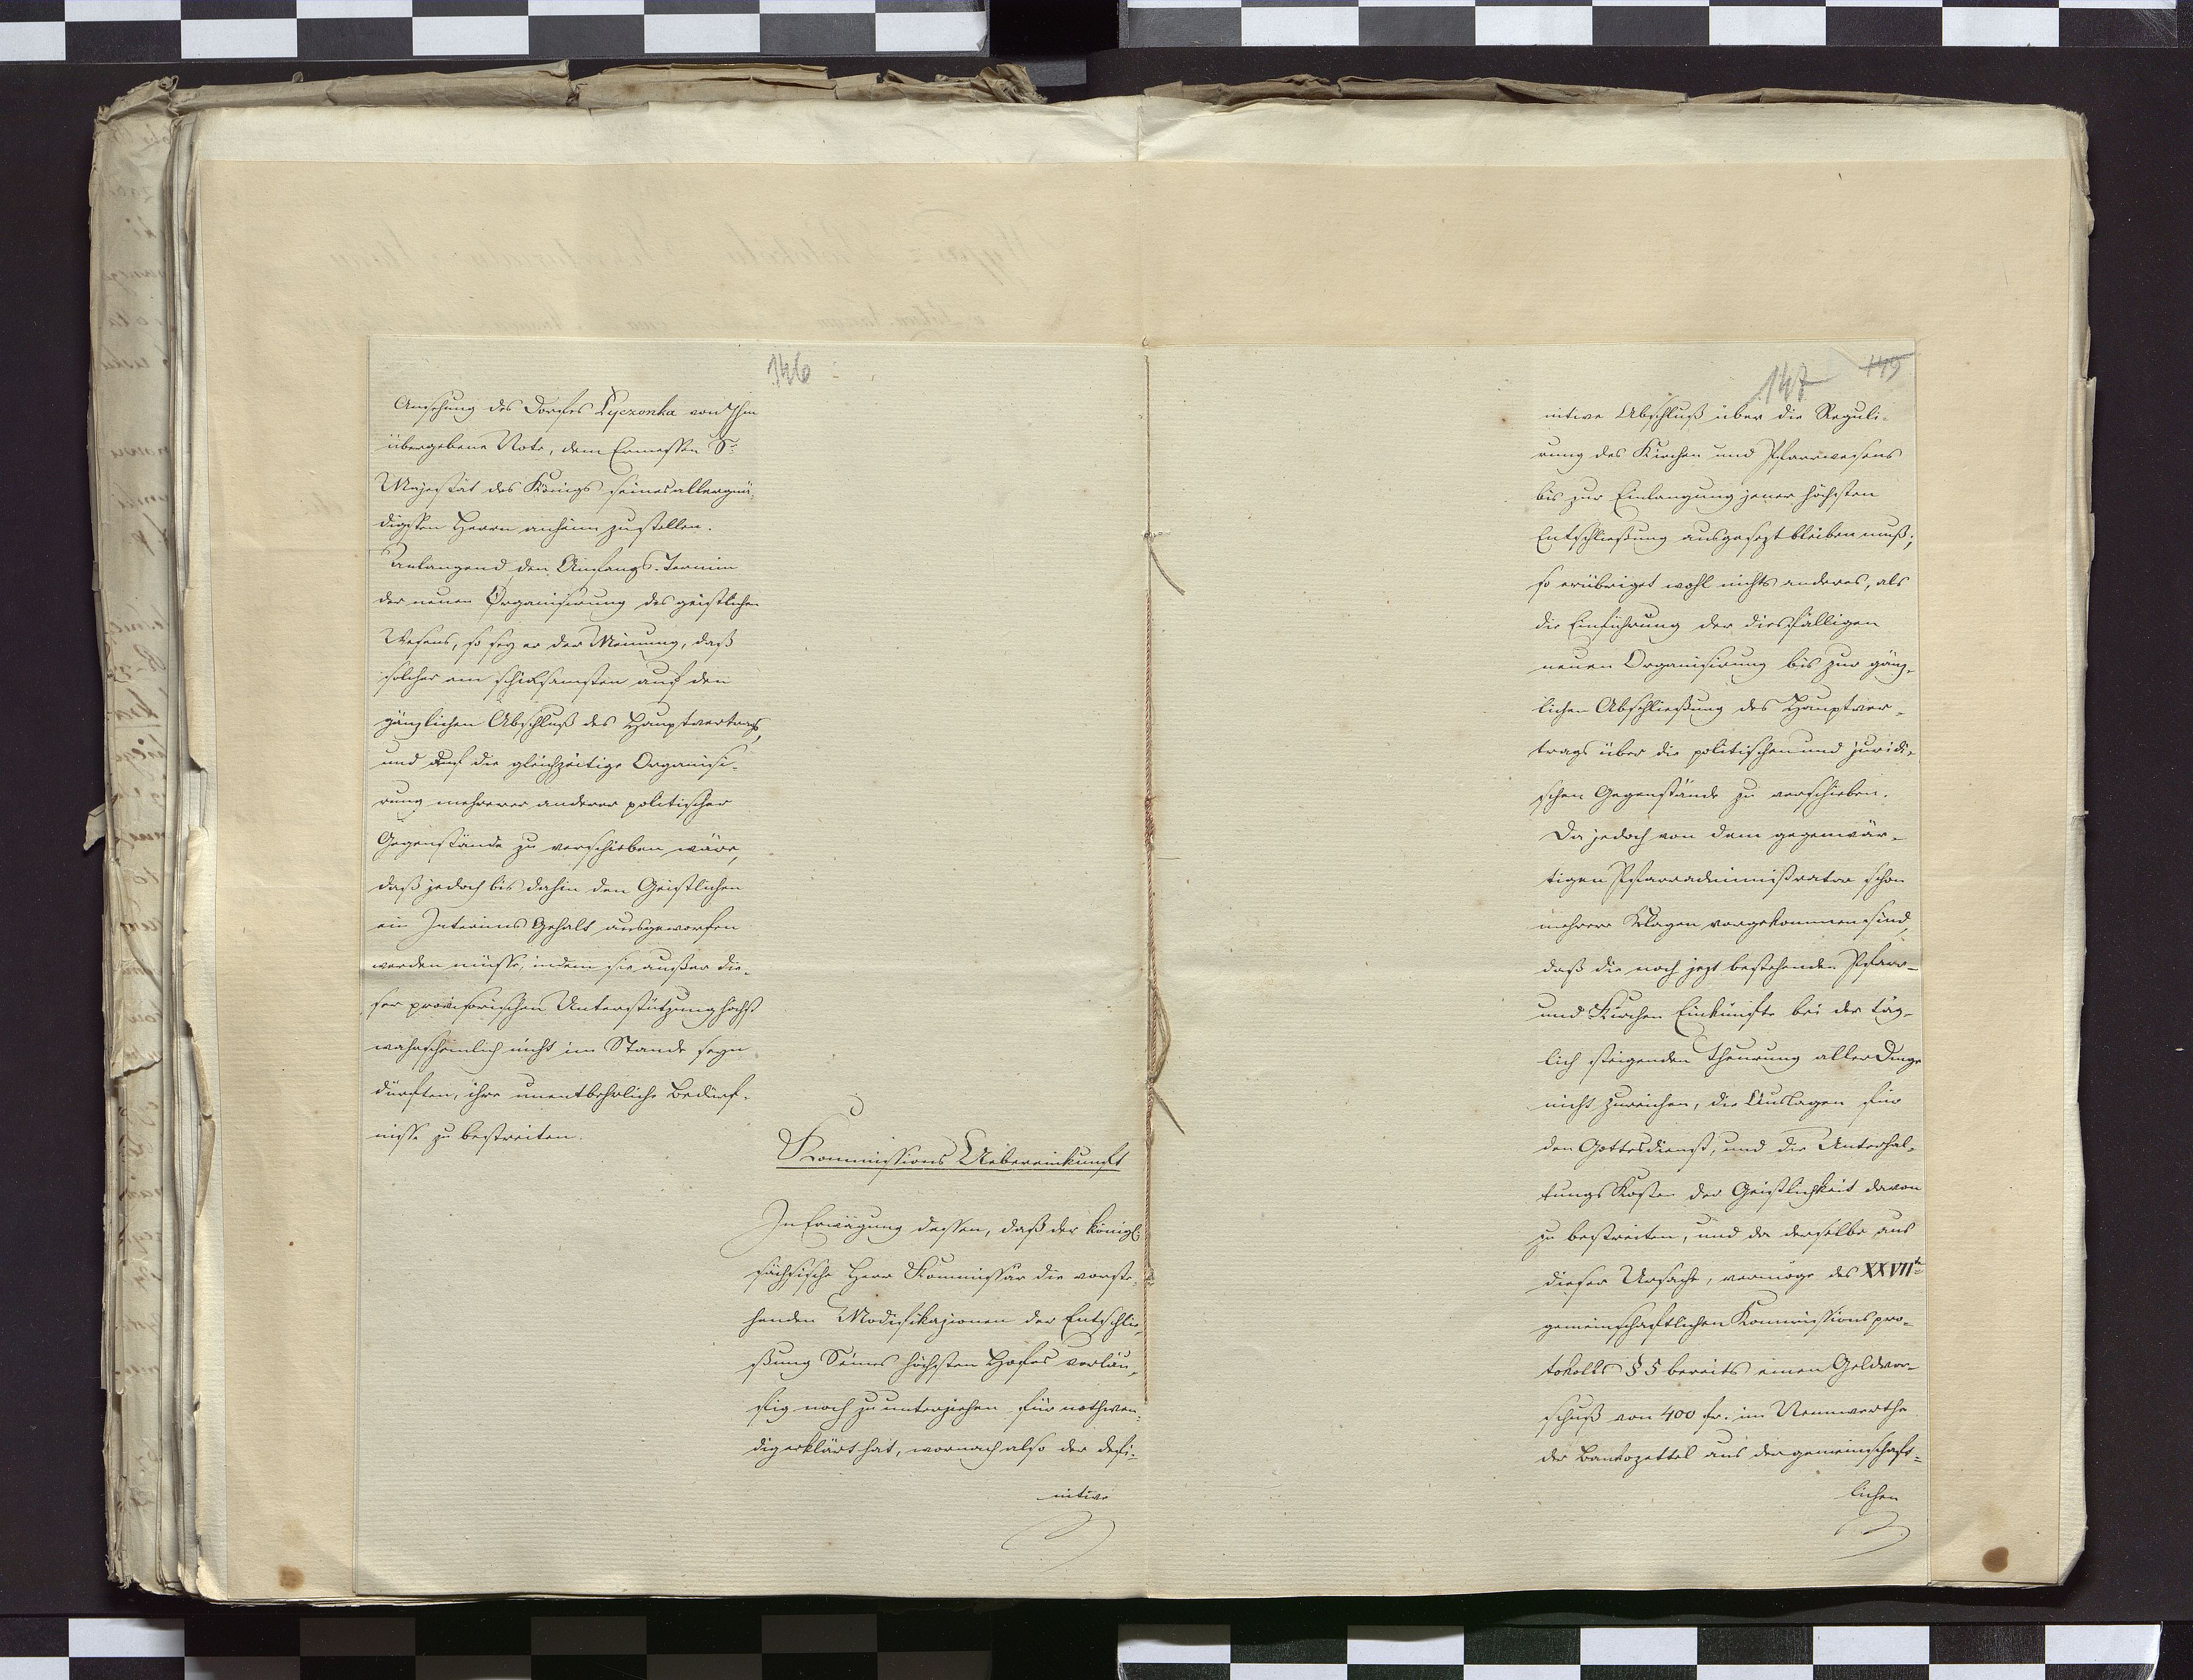 146
Ansehung des Dorfes Lyczonka von Ihm
übergebene Note, dem Ermessen Sr
Majestät des Königs seines allergnä-
digsten Herrn anheim zu stellen.
Anlangend den Anfangs-Termin
der neuen Organisirung des geistlichen
Wesens, so sey er der Meinung, daß
solcher am schiksamsten auf den
gänzlichen Abschluß des Hauptvertrags,
und auf die gleichzeitige Organisi-
rung mehrerer anderer politischer
Gegenstände zu verschieben wäre,
daß jedoch bis dahin den Geistlichen
ein Interims Gehalt ausgeworfen
werden müsse, indem sie außer die-
ser provisorischen Unterstützung höchst
wahrscheinlich nicht im Stande seyn
dürften, ihre unentbehrliche Bedürf-
nisse zu bestreiten.
Kommissions Uebereinkunft
In Erwägung dessen, daß der königl.
sächsische Herr Kommissär die vorste-
henden Modifikazionen der Entschlie-
ßung Seines höchsten Hofes vorläu-
fig noch zu unterziehen für nothwen-
dig erklärt hat, wornach also der defi-
nitive
147
119
nitive Abschluß über die Reguli-
rung des Kirchen und Pfarrwesens
bis zur Einlangung jener höchsten
Entschließung ausgesezt bleiben muß;
so erübriget wohl nichts anderes, als
die Einführung der diesfälligen
neuen Organisirung bis zur gänz-
lichen Abschließung des Hauptver-
trags über die politischen und juridi-
schen Gegenstände zu verschieben.
Da jedoch von dem gegenwär-
tigen Pfarradministrator schon
mehrere Klagen vorgekommen sind,
daß die noch jezt bestehenden Pfarr-
und Kirchen Einkünfte bei der täg-
lich steigenden Theurung aller Dinge
nicht zureichen, die Auslagen für
den Gottesdienst, und die Unterhal-
tungs Kosten der Geistlichkeit davon
zu bestreiten, und da derselbe aus
dieser Ursache, vermöge des XXVIIt
gemeinschaftlichen Kommissionspro-
tokolls § 5 bereits einen Geldvor-
schuß von 400 fr. im Nennwerthe
der Bankozettel aus der gemeinschaft-
lichen